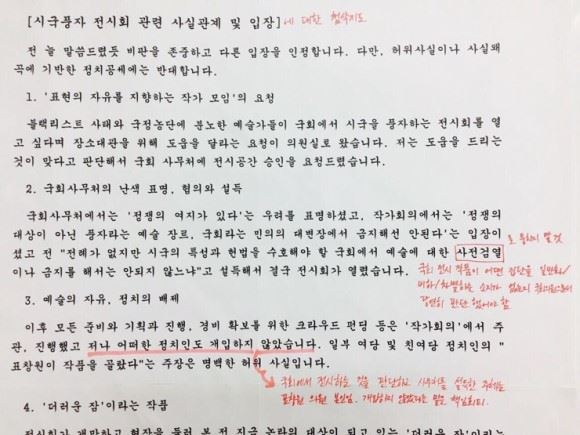 [시국풍자 전시회 관련 사실관계 및 입장]에 대한 첨삭지도
전 늘 말씀드렸듯 비판을 존중하고 다른 입장을 인정합니다. 다만, 허위사실이나 사실왜
곡에 기반한 정치공세에는 반대합니다.
1. '표현의 자유를 지향하는 작가 모임'의 요청
블랙리스트 사태와 국정농단에 분노한 예술가들이 국회에서 시국을 풍자하는 전시회를 열
고 싶다며 장소대관을 위해 도움을 달라는 요청이 의원실로 왔습니다. 저는 도움을 드리는
것이 맞다고 판단해서 국회 사무처에 전시공간 승인을 요청드렸습니다.
2. 국회사무처의 난색 표명, 협의와 설득
국회사무처에서는 '정쟁의 여지가 있다'는 우려를 표명하셨고, 작가회의에서는 '정쟁의
대상이 아닌 풍자라는 예술 장르, 국회라는 민의의 대변장에서 금지해선 안된다'는 입장이
셨고 전 "전례가 없지만 시국의 특성과 헌법을 수호해야 할 국회에서 예술에 대한 사전검열
이나 금지를 해서는 안되지 않느냐"고 설득해서 결국 전시회가 열렸습니다.
국회 전시 작품이 어떤 집단을
비하/차별하는 소지가 없는지
당연히 판단 했어야 함
3. 예술의 자유, 정치의 배제
이후 모든 준비와 기획과 진행, 경비 확보를 위한 크라우드 펀딩 등은 '작가회의'에서 주
관, 진행했고 저나 어떠한 정치인도 개입하지 않았습니다. 일부 여당 및 친여당 정치인의 "
표창원이 작품을 골랐다"는 주장은 명백한 허위 사실입니다.
국회에서 전시하는 것을 판단하고 사무처를 설득한 주체는
표창원 의원 본인임. 개입하지 않았다는 말은 책임회피.
4. '더러운 잠'이라는 작품